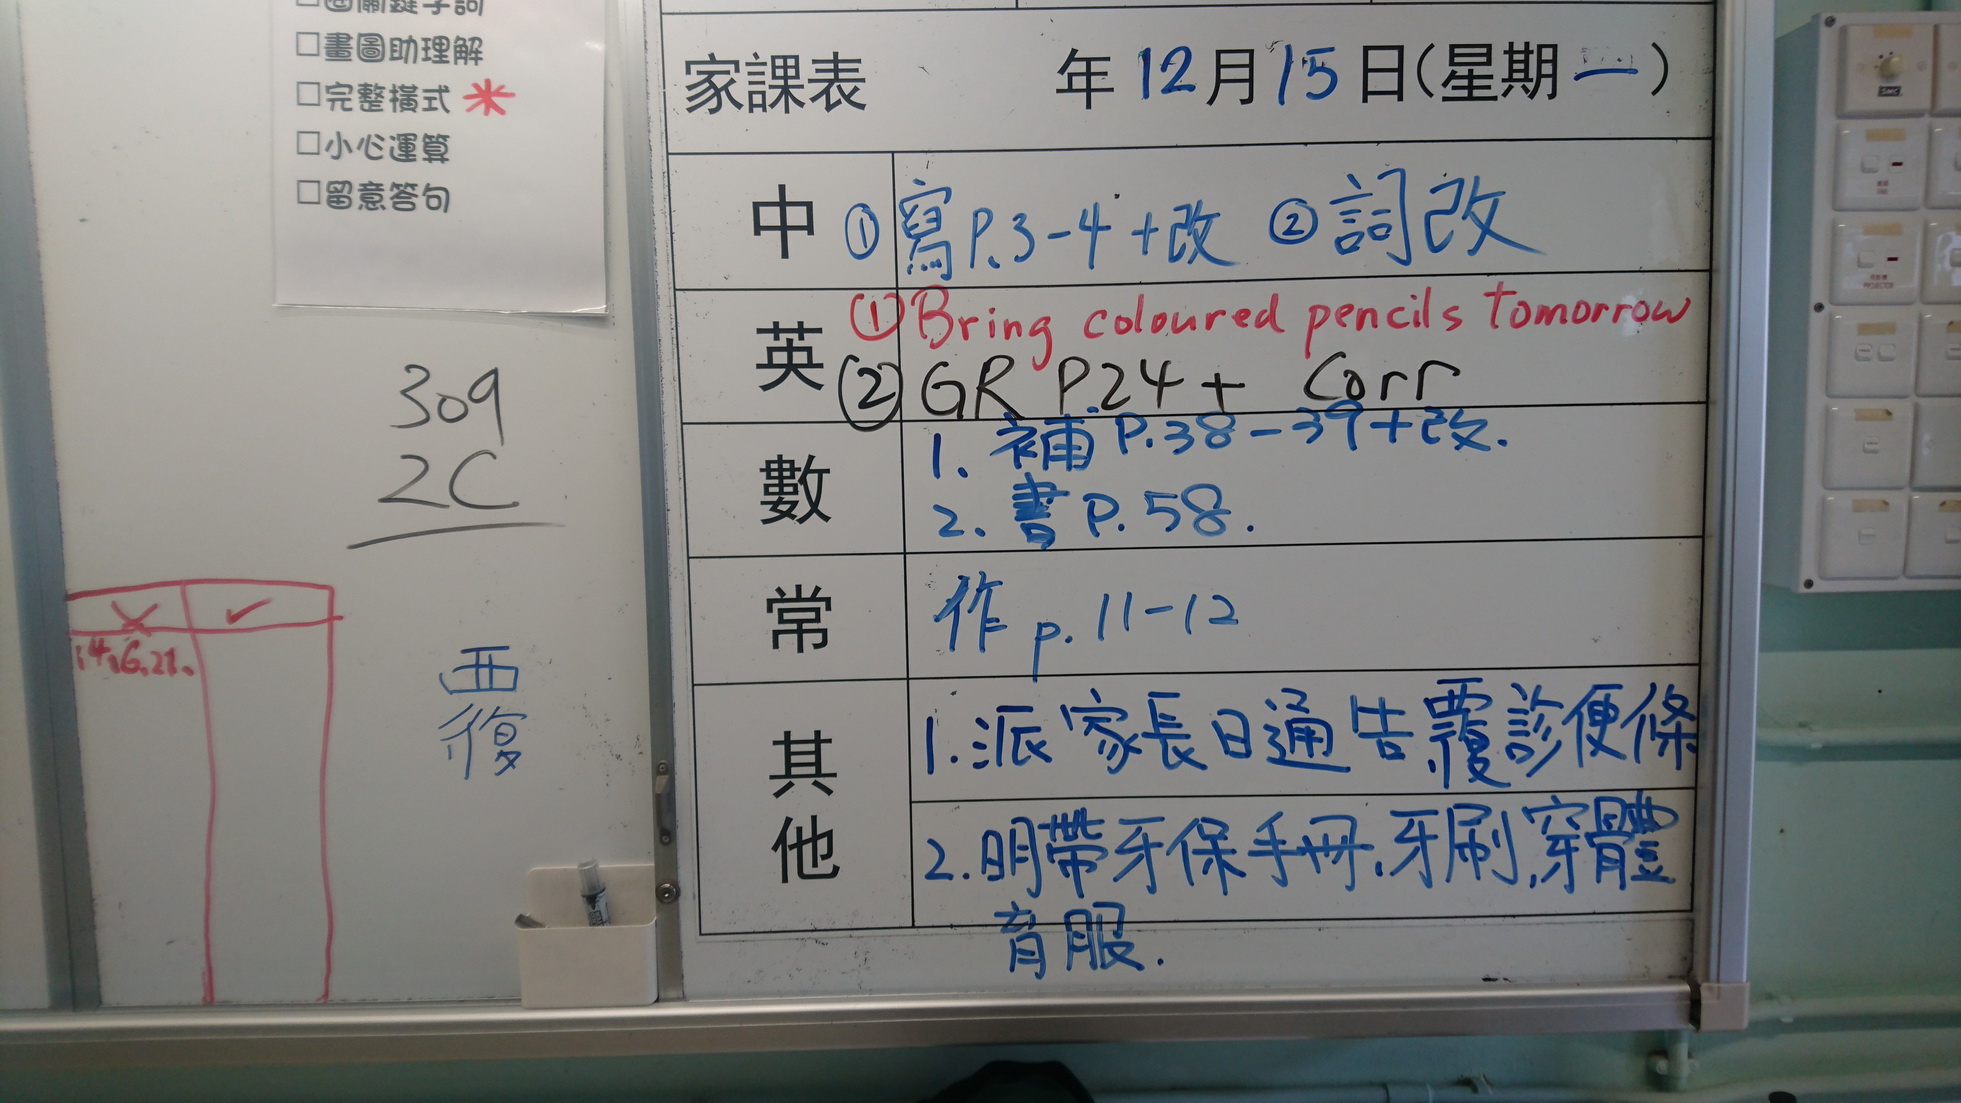 □畫圖助理解
□完整橫式 米
□小心運算
□留意答句
309
2C
✓
西
復
家課表 年12月15日(星期一)
中 ①寫P.3-4+改 ②詞改
英 ①Bring coloured pencils tomorrow
②GR P24+ Corr
數 1. 補P.38-39+改.
2. 書P.58.
常 作p.11-12
其他 1.派家長日通告覆診便條
2.明帶牙保手冊,牙刷,穿體
育服.